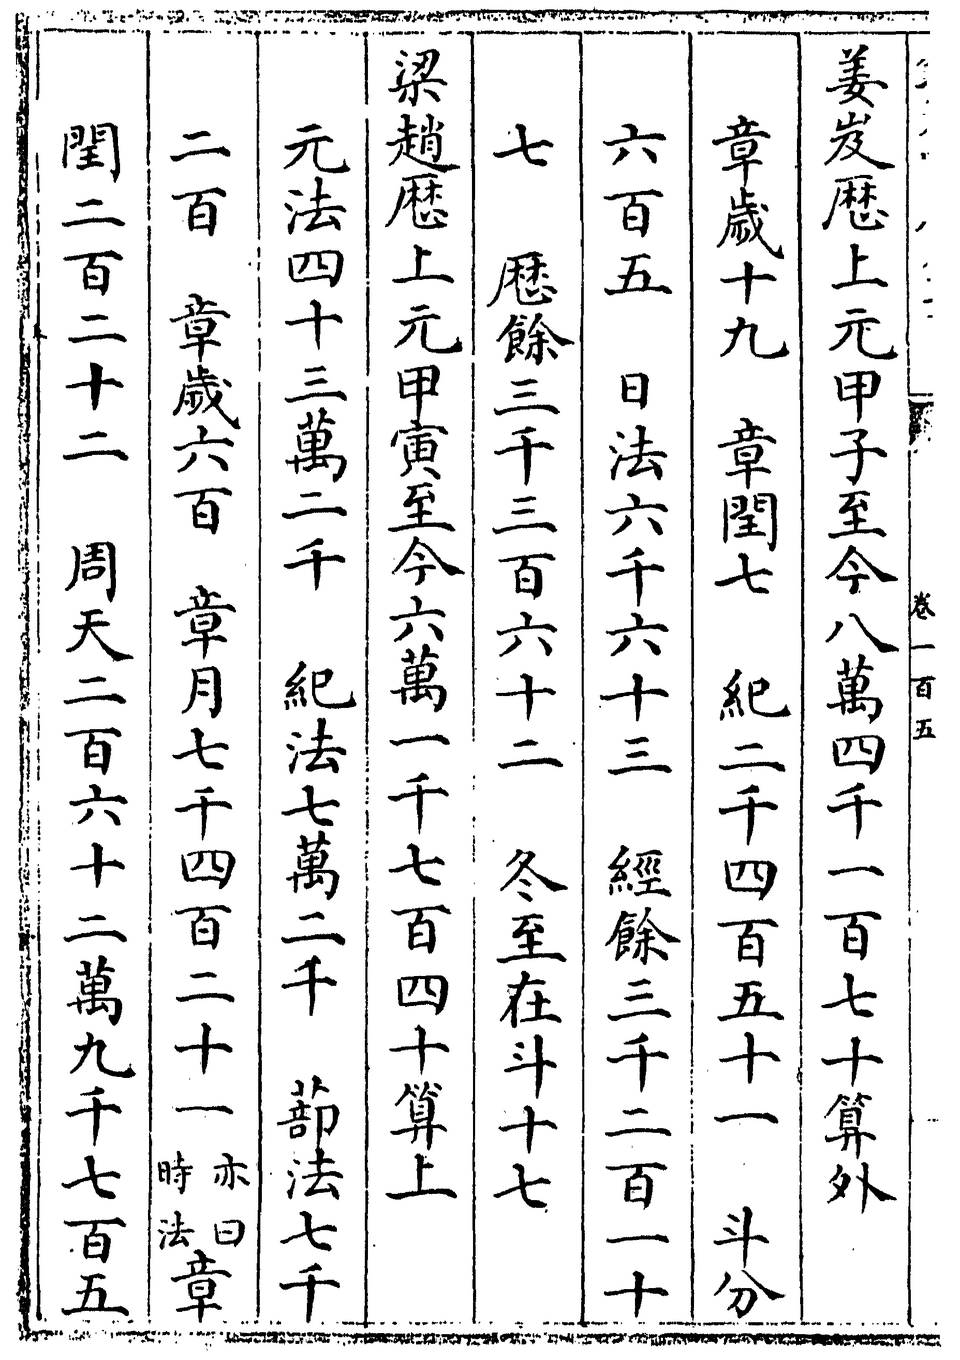 卷一百五
姜岌歴上元甲子至今八萬四千一百七十算外
章歲十九　章閏七　紀二千四百五十一　斗分
六百五　日法六千六十三　經餘三千二百一十
七　歴餘三千三百六十二　冬至在斗十七
梁趙歴上元甲寅至今六萬一千七百四十算上
元法四十三萬二千　紀法七萬二千　蔀法七千
二百　章歲六百　章月七千四百二十一亦曰時法章
閏二百二十二　周天二百六十二萬九千七百五